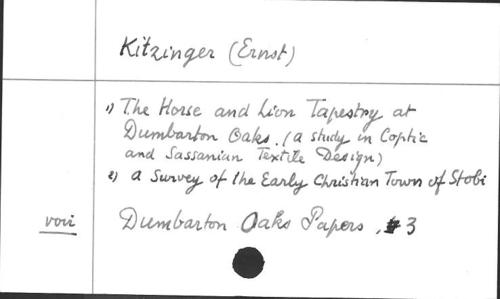 Kitzinger (Ernst)
1) The Horse and Lion Tapestry at
Dumbarton Oaks. (a study in Coptic
and Sassanian Textile Design)
2) a Survey of the Early Christian Town of Stobi
voir Dumbarton Oaks Papers, #3